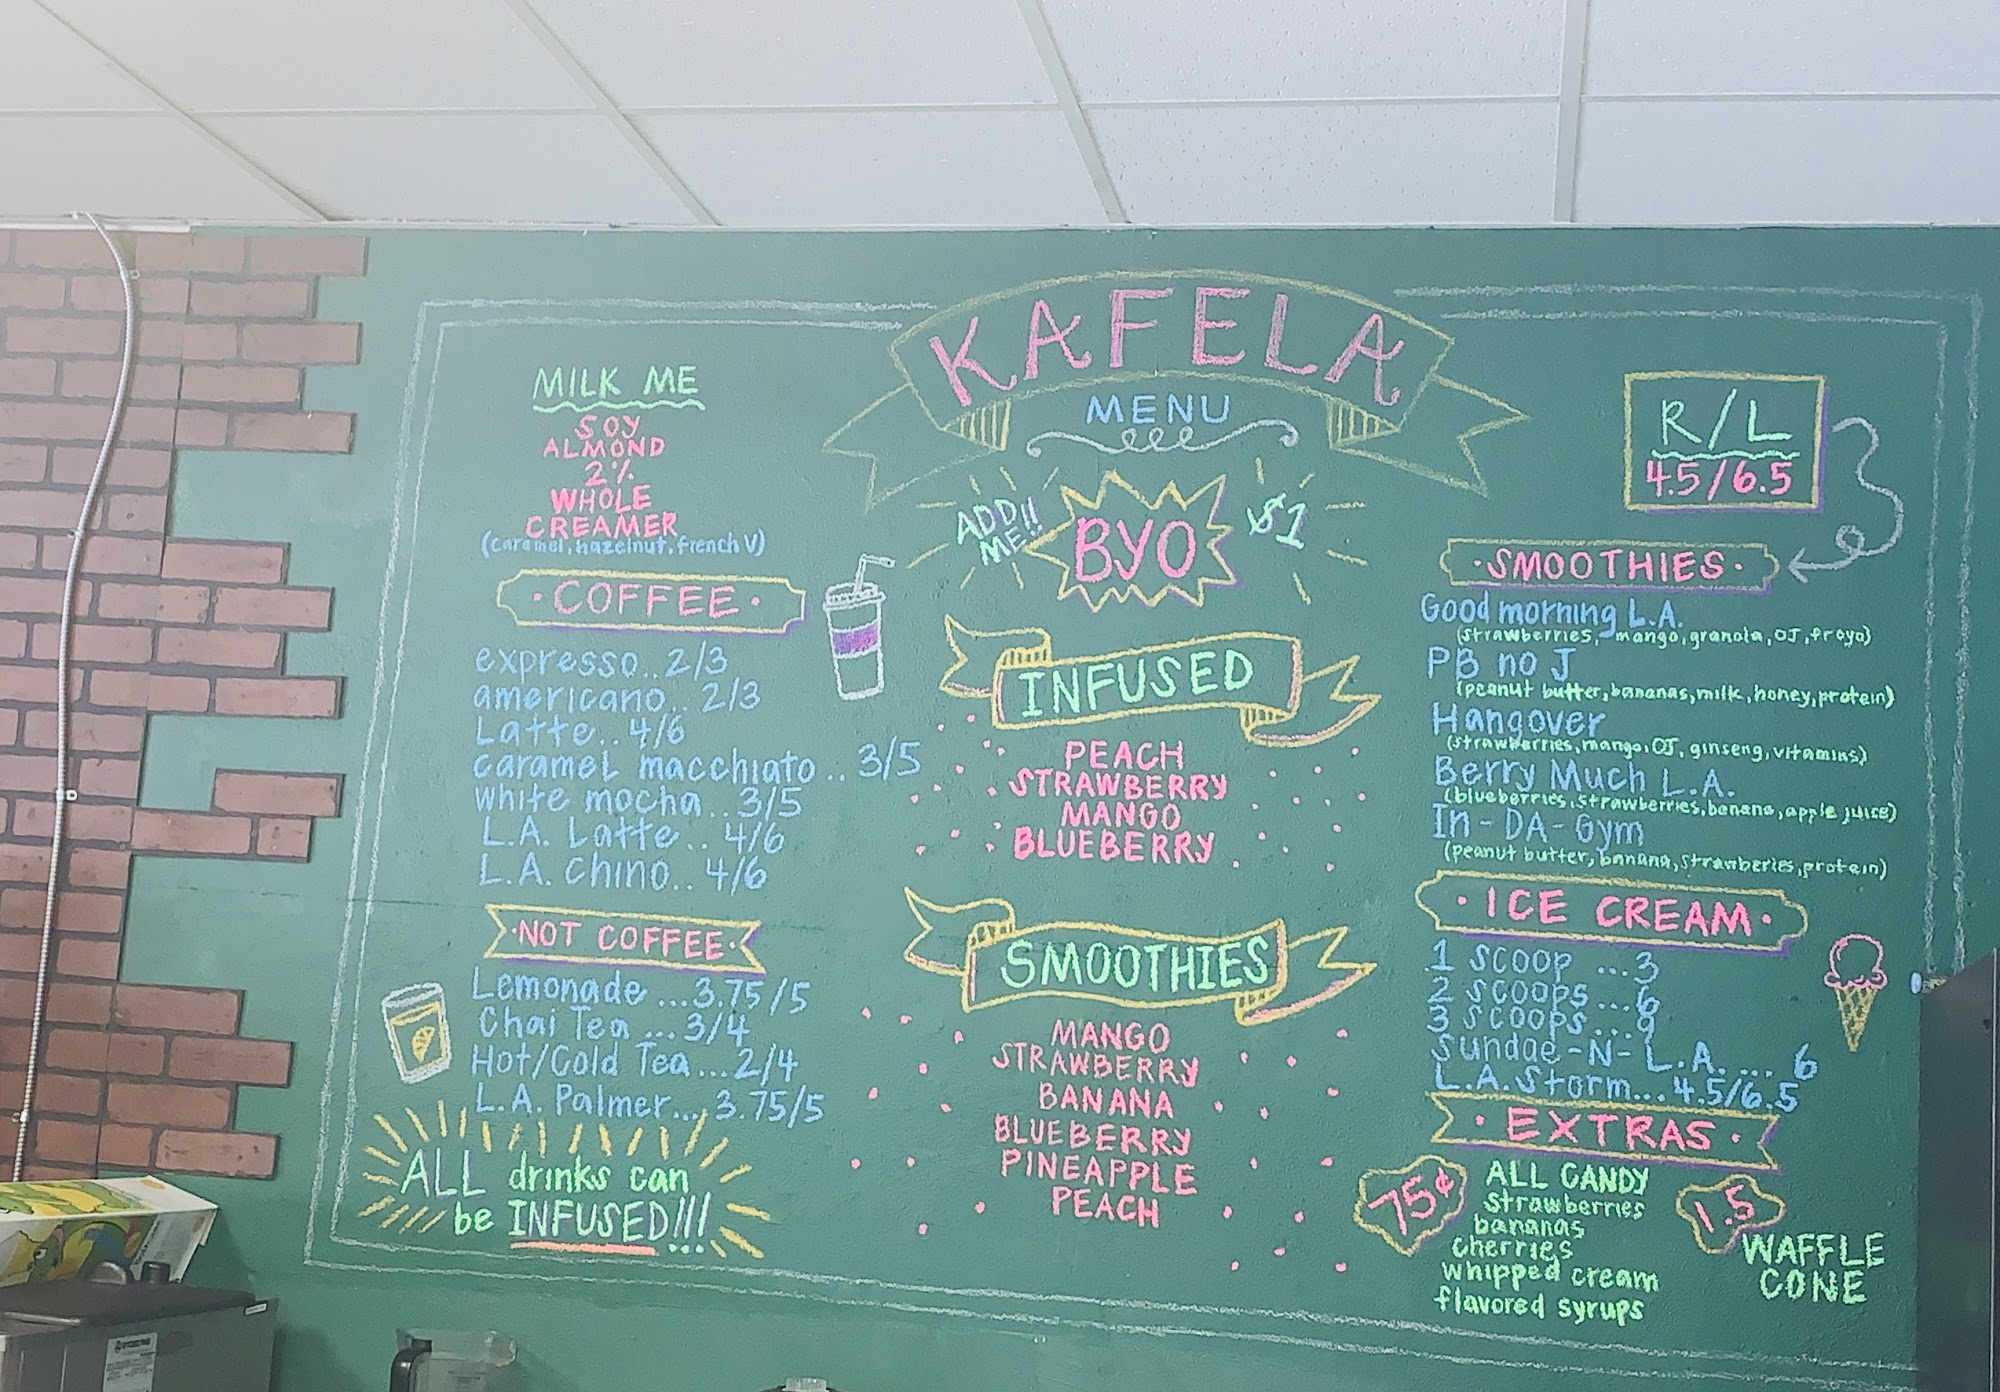 KAFELA
MENU
MILK ME
SOY
ALMOND
2%
WHOLE
CREAMER
(caramel, hazelnut, french V)
·COFFEE·
expresso..2/3
americano..2/3
Latte..4/6
caramel macchiato..3/5
white mocha..3/5
L.A. Latte..4/6
L.A. Chino..4/6
·NOT COFFEE·
Lemonade...3.75/5
Chai Tea...3/4
Hot/Cold Tea...2/4
L.A. Palmer...3.75/5
ALL drinks can
be INFUSED!!!
ADD ME!!
BYO
$1
INFUSED
PEACH
STRAWBERRY
MANGO
BLUEBERRY
SMOOTHIES
MANGO
STRAWBERRY
BANANA
BLUEBERRY
PINEAPPLE
PEACH
R/L
4.5/6.5
·SMOOTHIES·
Good morning L.A.
(strawberries, mango, granola, OJ, froyo)
PB no J
(peanut butter, bananas, milk, honey, protein)
Hangover
(strawberries, mango, OJ, ginseng, vitamins)
Berry Much L.A.
(blueberries, strawberries, banana, apple juice)
In-DA-Gym
(peanut butter, banana, strawberies, protein)
·ICE CREAM·
1 scoop ...3
2 scoops ...6
3 scoops ...9
Sundae-N-L.A. ... 6
L.A. Storm...4.5/6.5
·EXTRAS·
75¢
ALL CANDY
strawberries
bananas
cherries
whipped cream
flavored syrups
1.5
WAFFLE
CONE